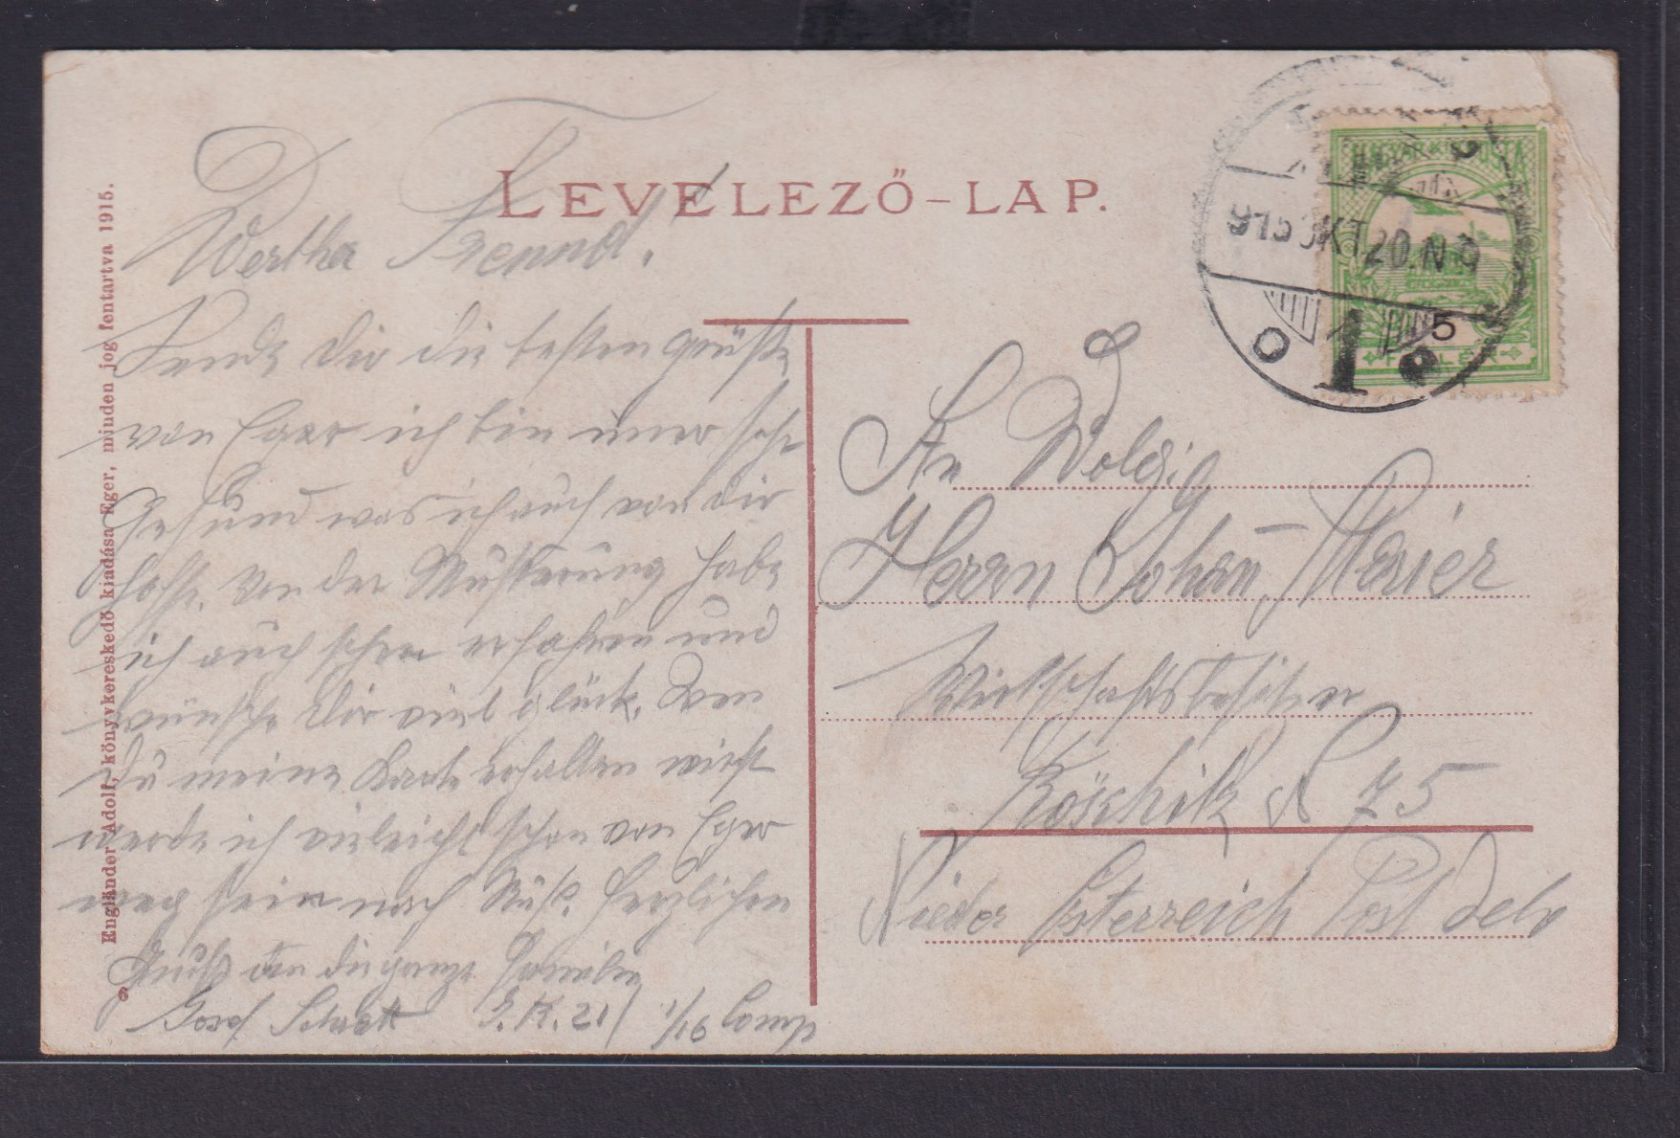 LEVELEZŐ-LAP.
Engländer Adolf, könyvkereskedő kiadása Eger, minden jog fentartva 1915.
6
MAGYAR KIR. POSTA
915 OKT 20. N 9
1
5
Wertha Freund.
Sende dir die besten grüße
von Eger ich bin immer sehr
gesund was ich auch von dir
hoffe. Von der Musterung habe
ich auch schon erfahren und
wünsche dir viel glück. Wen
du meine Karte erhalten wirst
werde ich vieleicht schon von Eger
weg sein nach herzlichen
Gruß an die ganze Familie
Josef I.R. 21 1/16 Comp
An
Herrn Johan Maier
Wirtschaftsbesitzer
Röschitz N 75
Nieder Österreich Post